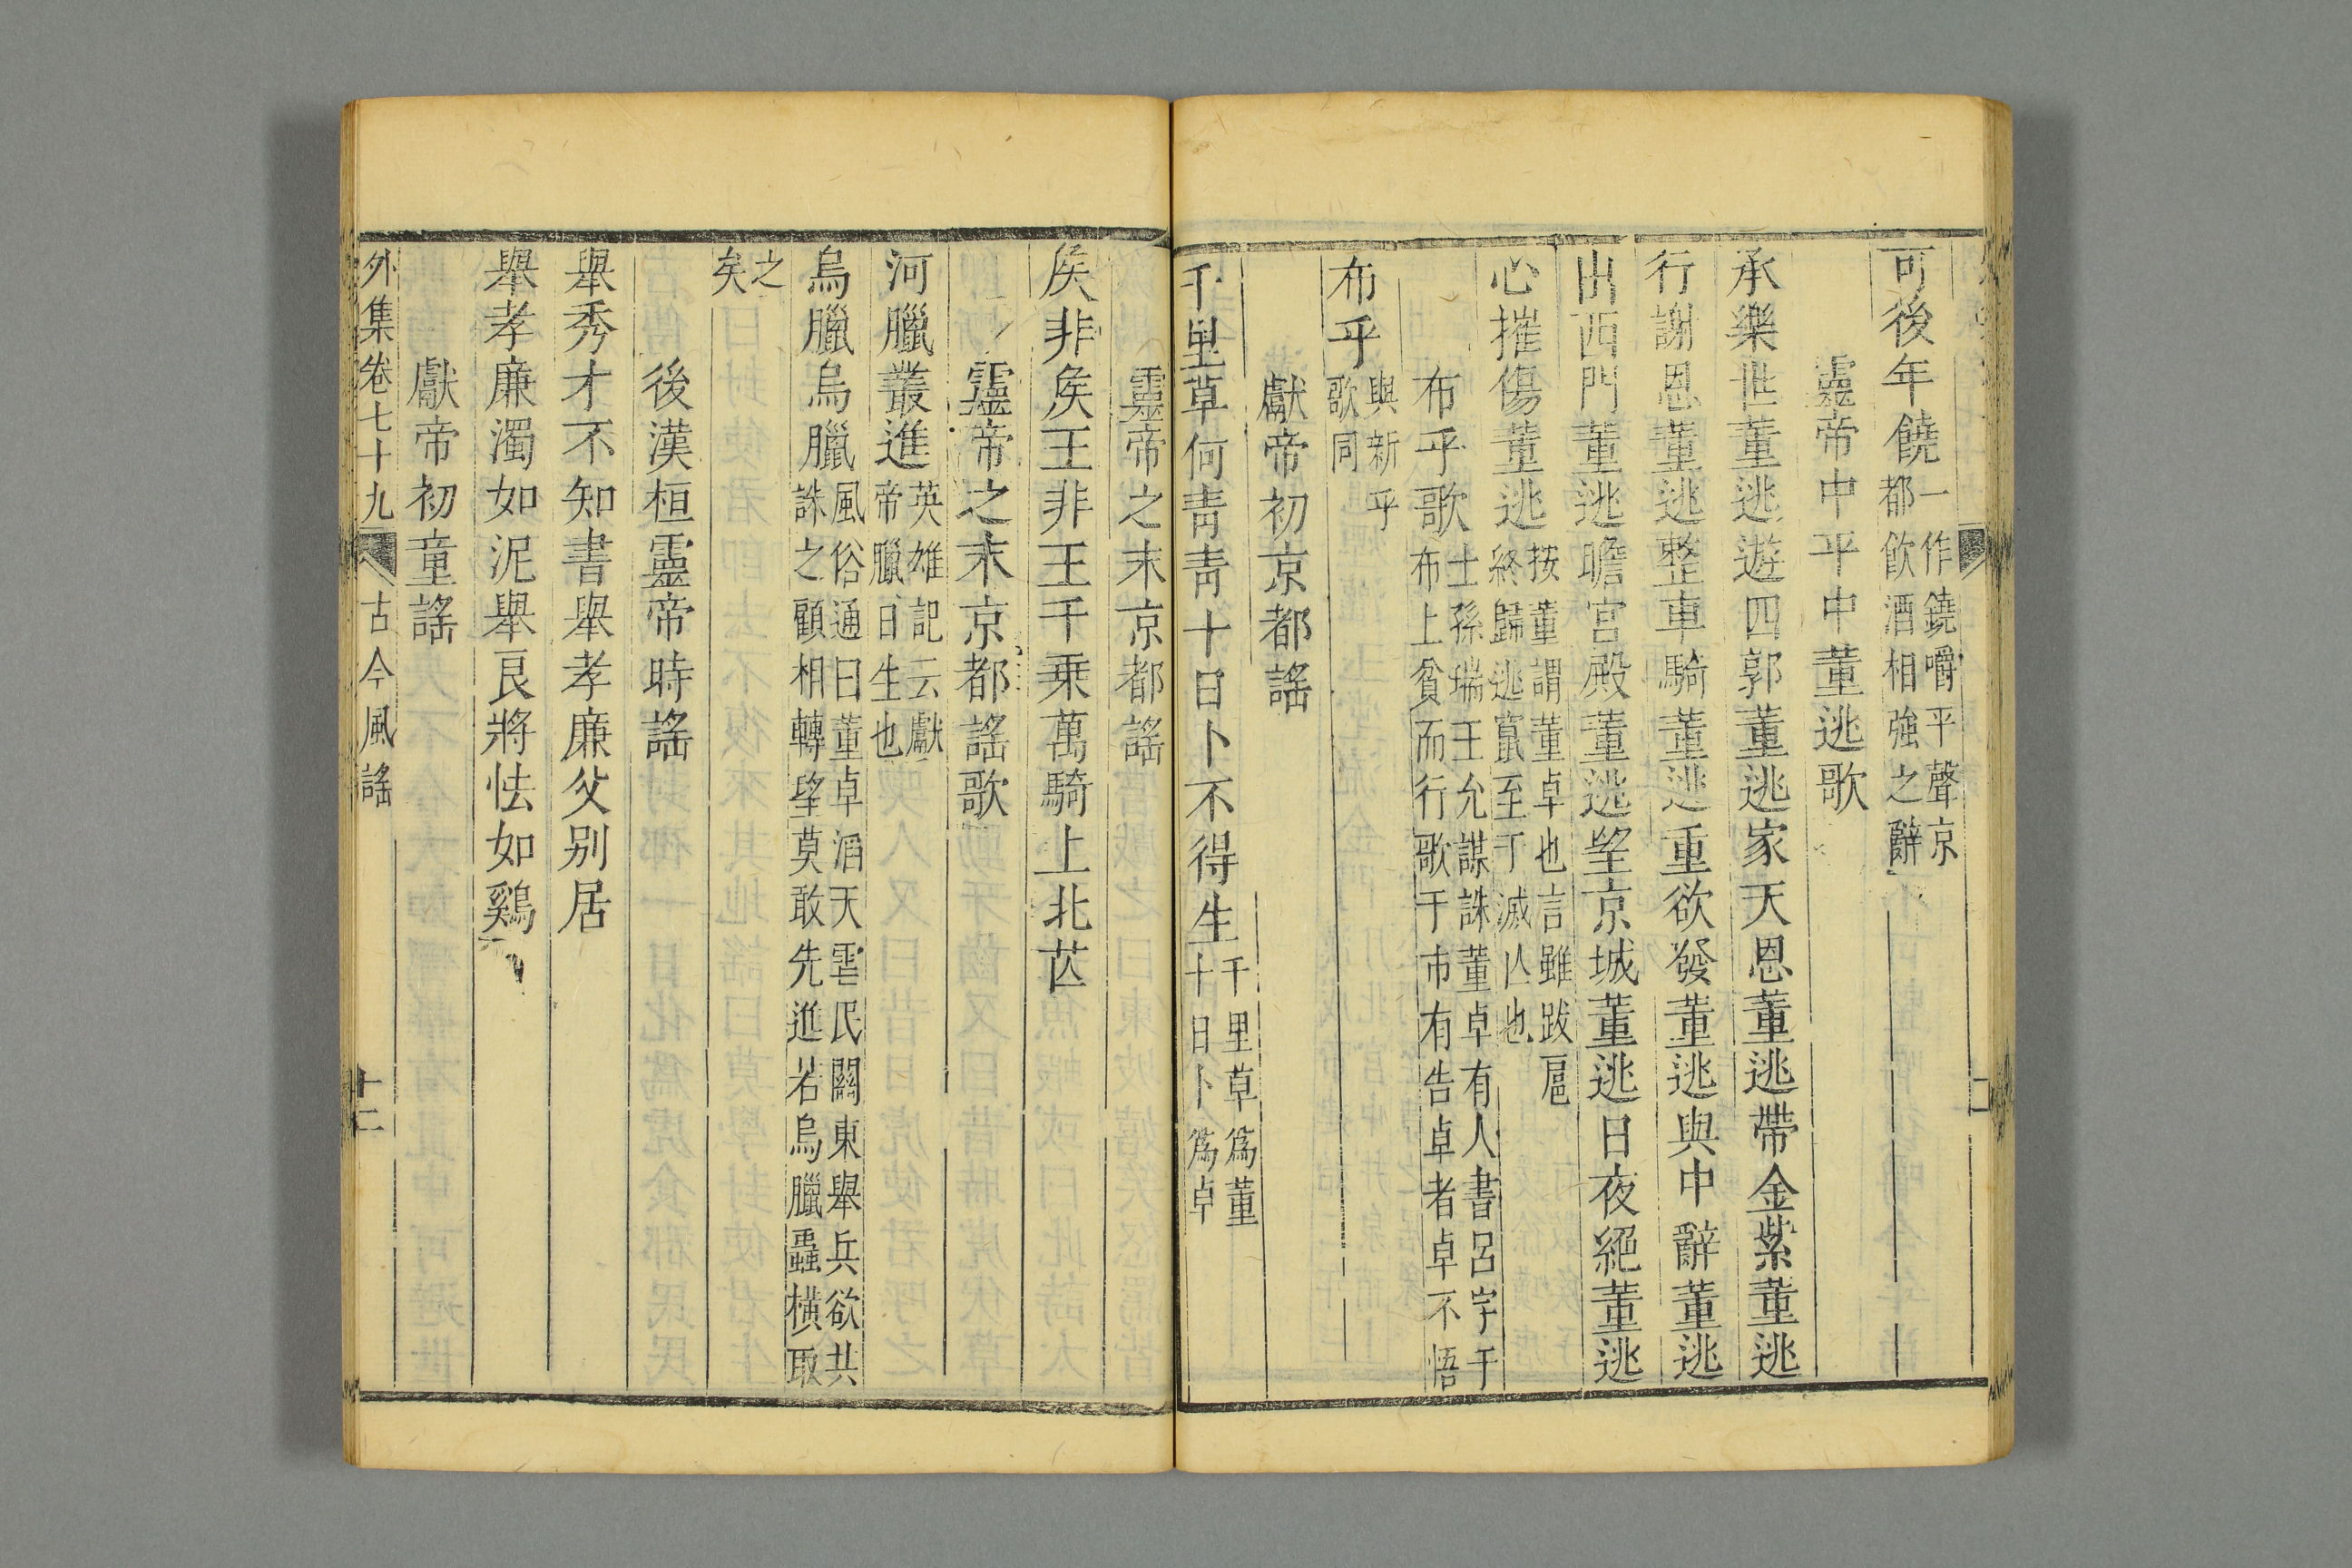 可後年饒一作鐃嚼平聲京都飲酒相強之辭
靈帝中平中董逃歌
承樂世董逃遊四郭董逃家天恩董逃帶金紫董逃
行謝恩董逃整車騎董逃重欲發董逃與中辭董逃
出西門董逃瞻宮殿董逃望京城董逃日夜絕董逃
心摧傷董逃按董謂董卓也言雖跋扈終歸逃竄至于滅亾也
布乎歌士孫瑞王允謀誅董卓有人書呂字于布上負而行歌于市有告卓者卓不悟
布乎與新乎歌同
獻帝初京都謠
千里草何青青十日卜不得生千里草爲董十日卜爲卓
靈帝之末京都謠
矦非矦王非王千乗萬騎上北芒
靈帝之末京都謠歌
河臘叢進英雄記云獻帝臘日生也
烏臘烏臘風俗通曰董卓滔天虐民關東舉兵欲共誅之顧相轉望莫敢先進若烏臘蟲橫取
之矣
後漢桓靈帝時謠
舉秀才不知書舉孝廉父别居
舉孝廉濁如泥舉良將怯如鷄
獻帝初童謠
外集卷七十九 古今風謠 十二